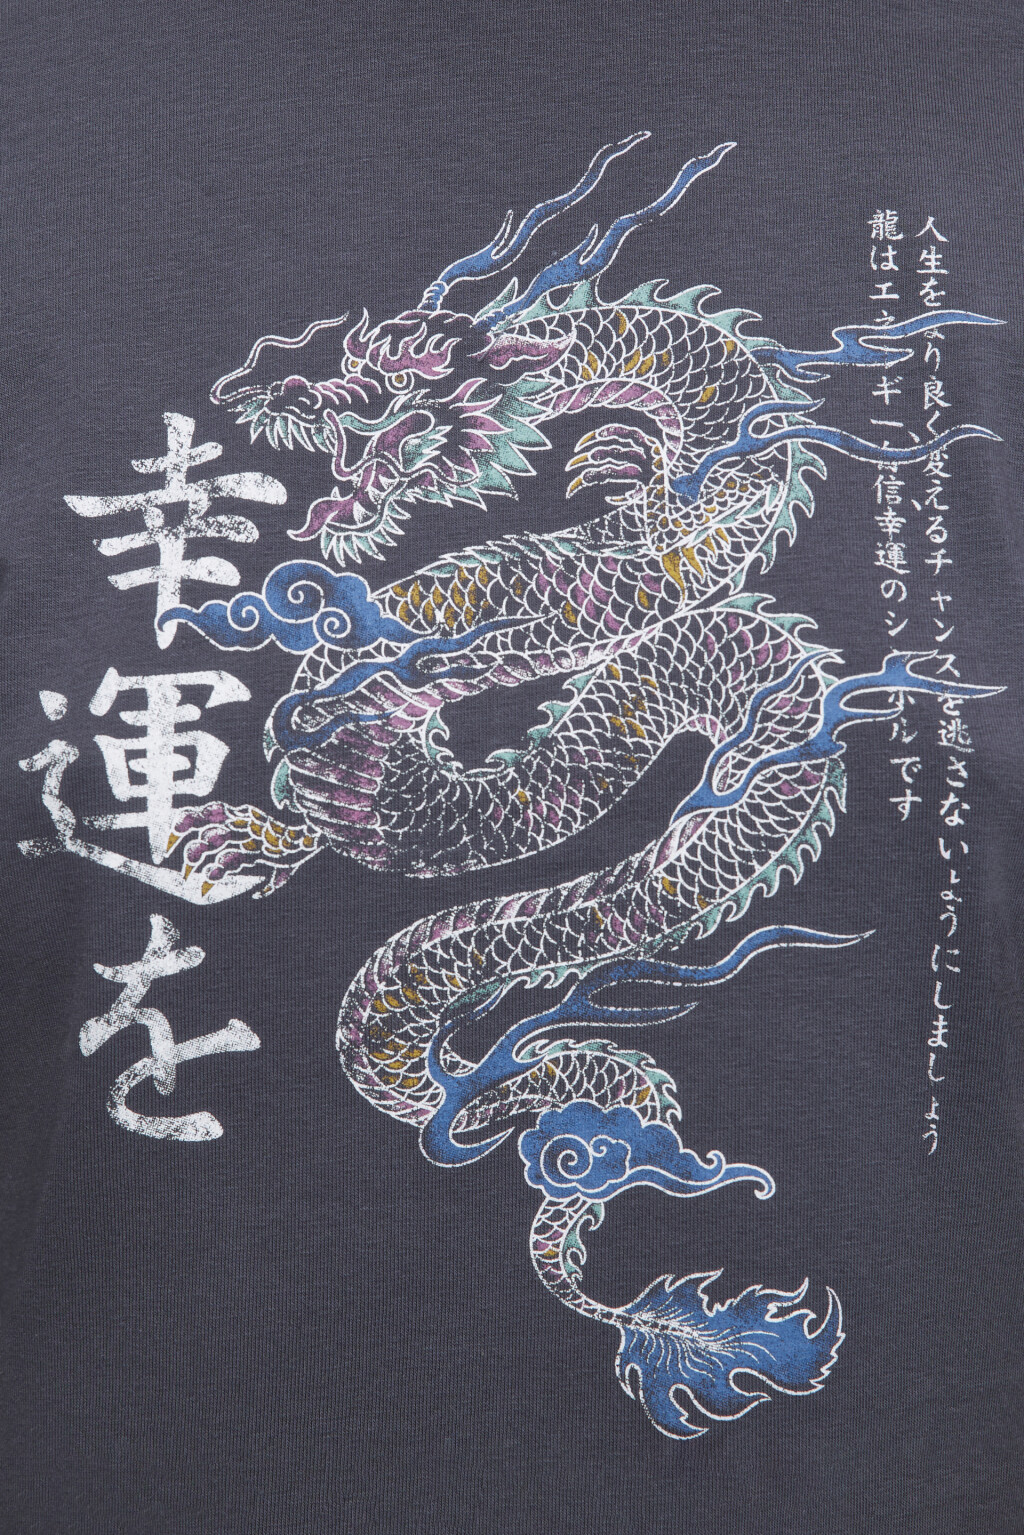 人生をより良く変えるチャンスを逃さないようにしましょう
龍はエネルギー、自信、幸運のシンボルです
幸運を